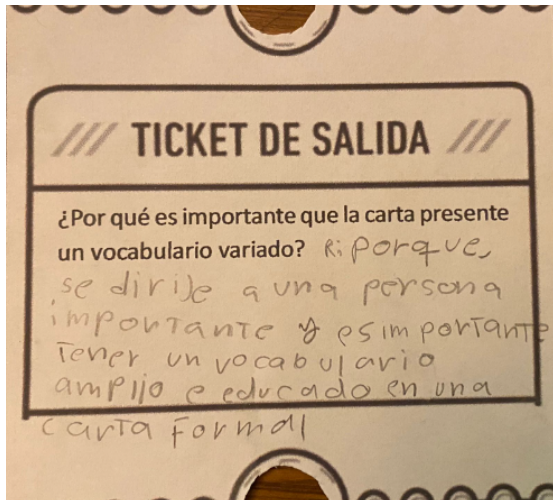 /// TICKET DE SALIDA ///
¿Por qué es importante que la carta presente
un vocabulario variado? R: Porque,
se dirije a una persona
importante y es importante
Tener un vocabulario
amplio e educado en una
carta Formal